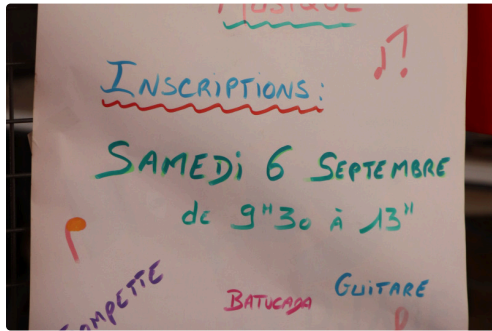 MUSIQUE
INSCRIPTIONS:
SAMEDi 6 SEPTEMBRE
de 9H30 à 13H
GUiTARE
BATUCADA